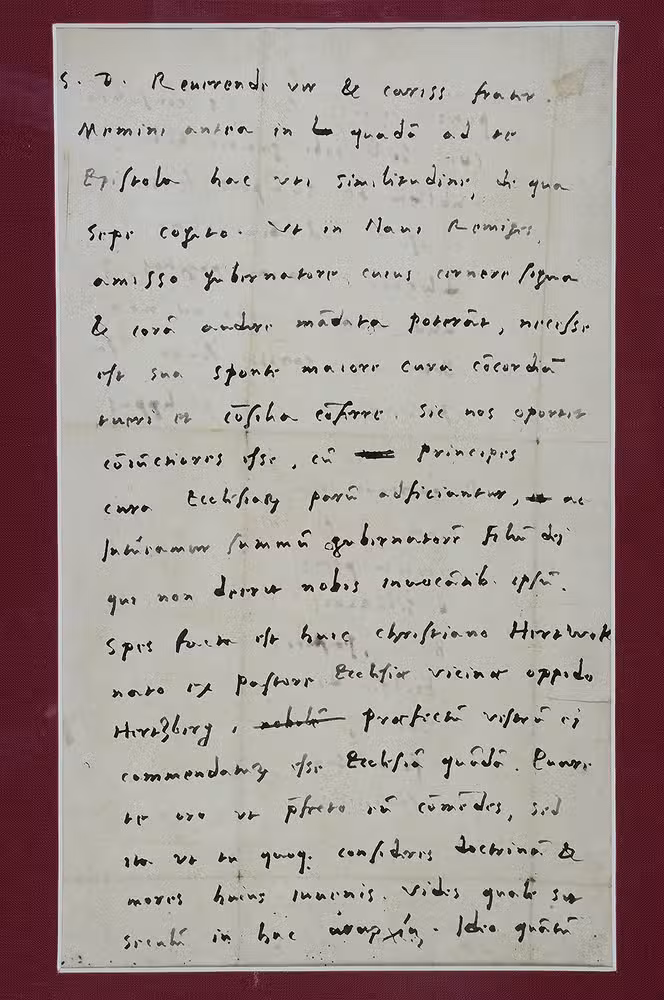 S. D. Reuerende vir & cariss frater.
Memini antea in quadā ad te
Epistola hac uti similitudine, de qua
sepe cogito. Ut in Naui Remiges,
amisso gubernatore, cuius cernere signa
& corā audire mādata poterāt, necesse
est sua sponte maiore cura cōcordiā
tueri et cōsilia cōferre. Sic nos oportet
cōiūctiores esse, cū principes
cura Ecclesiaꝝ parū adficiantur, ac
intueamur summū gubernatorē filiū dei
qui non deerit nobis inuocātib. ipsū.
Spes facta est huic Christiano Hertzwolt
nato ex pastore Ecclesiæ vicinæ oppido
Hertzberg, præfectū vestrū ei
commendatuꝝ esse Ecclesiā quādā. Quare
te oro ut cū cōmēdes, sed
ita ut tu quoq. consideres doctrinā &
mores huius iuuenis. Vides quale sit
seculū in hac ἀναρχίᾳ. Ideo quātū